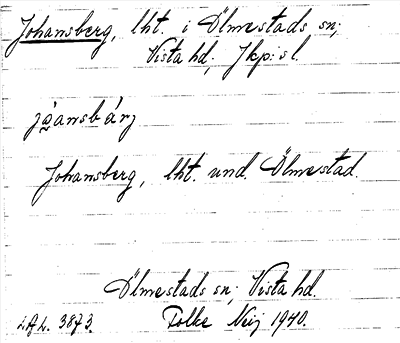 Johansberg, lht. i Ölmestads sn;
Vista hd; Jkp:s l.
jòansbárj
Johansberg, lht. und. Ölmestad.
Ölmestads sn; Vista hd.
L.A.L. 3873. Folke Neij 1940.